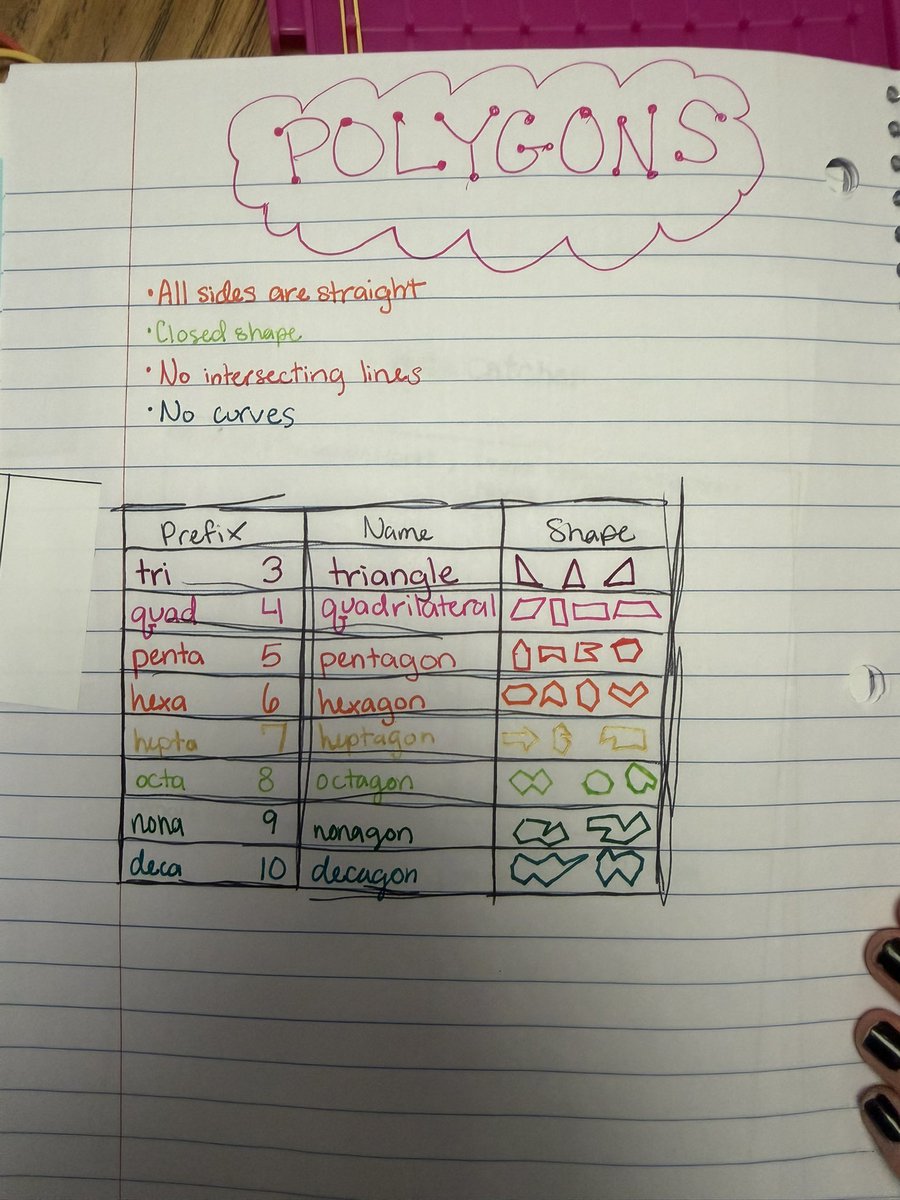 POLYGONS
•All sides are straight
•Closed shape
•No intersecting lines
•No curves
Prefix Name Shape
tri 3 triangle
quad 4 quadrilateral
penta 5 pentagon
hexa 6 hexagon
hepta 7 heptagon
octa 8 octagon
nona 9 nonagon
deca 10 decagon